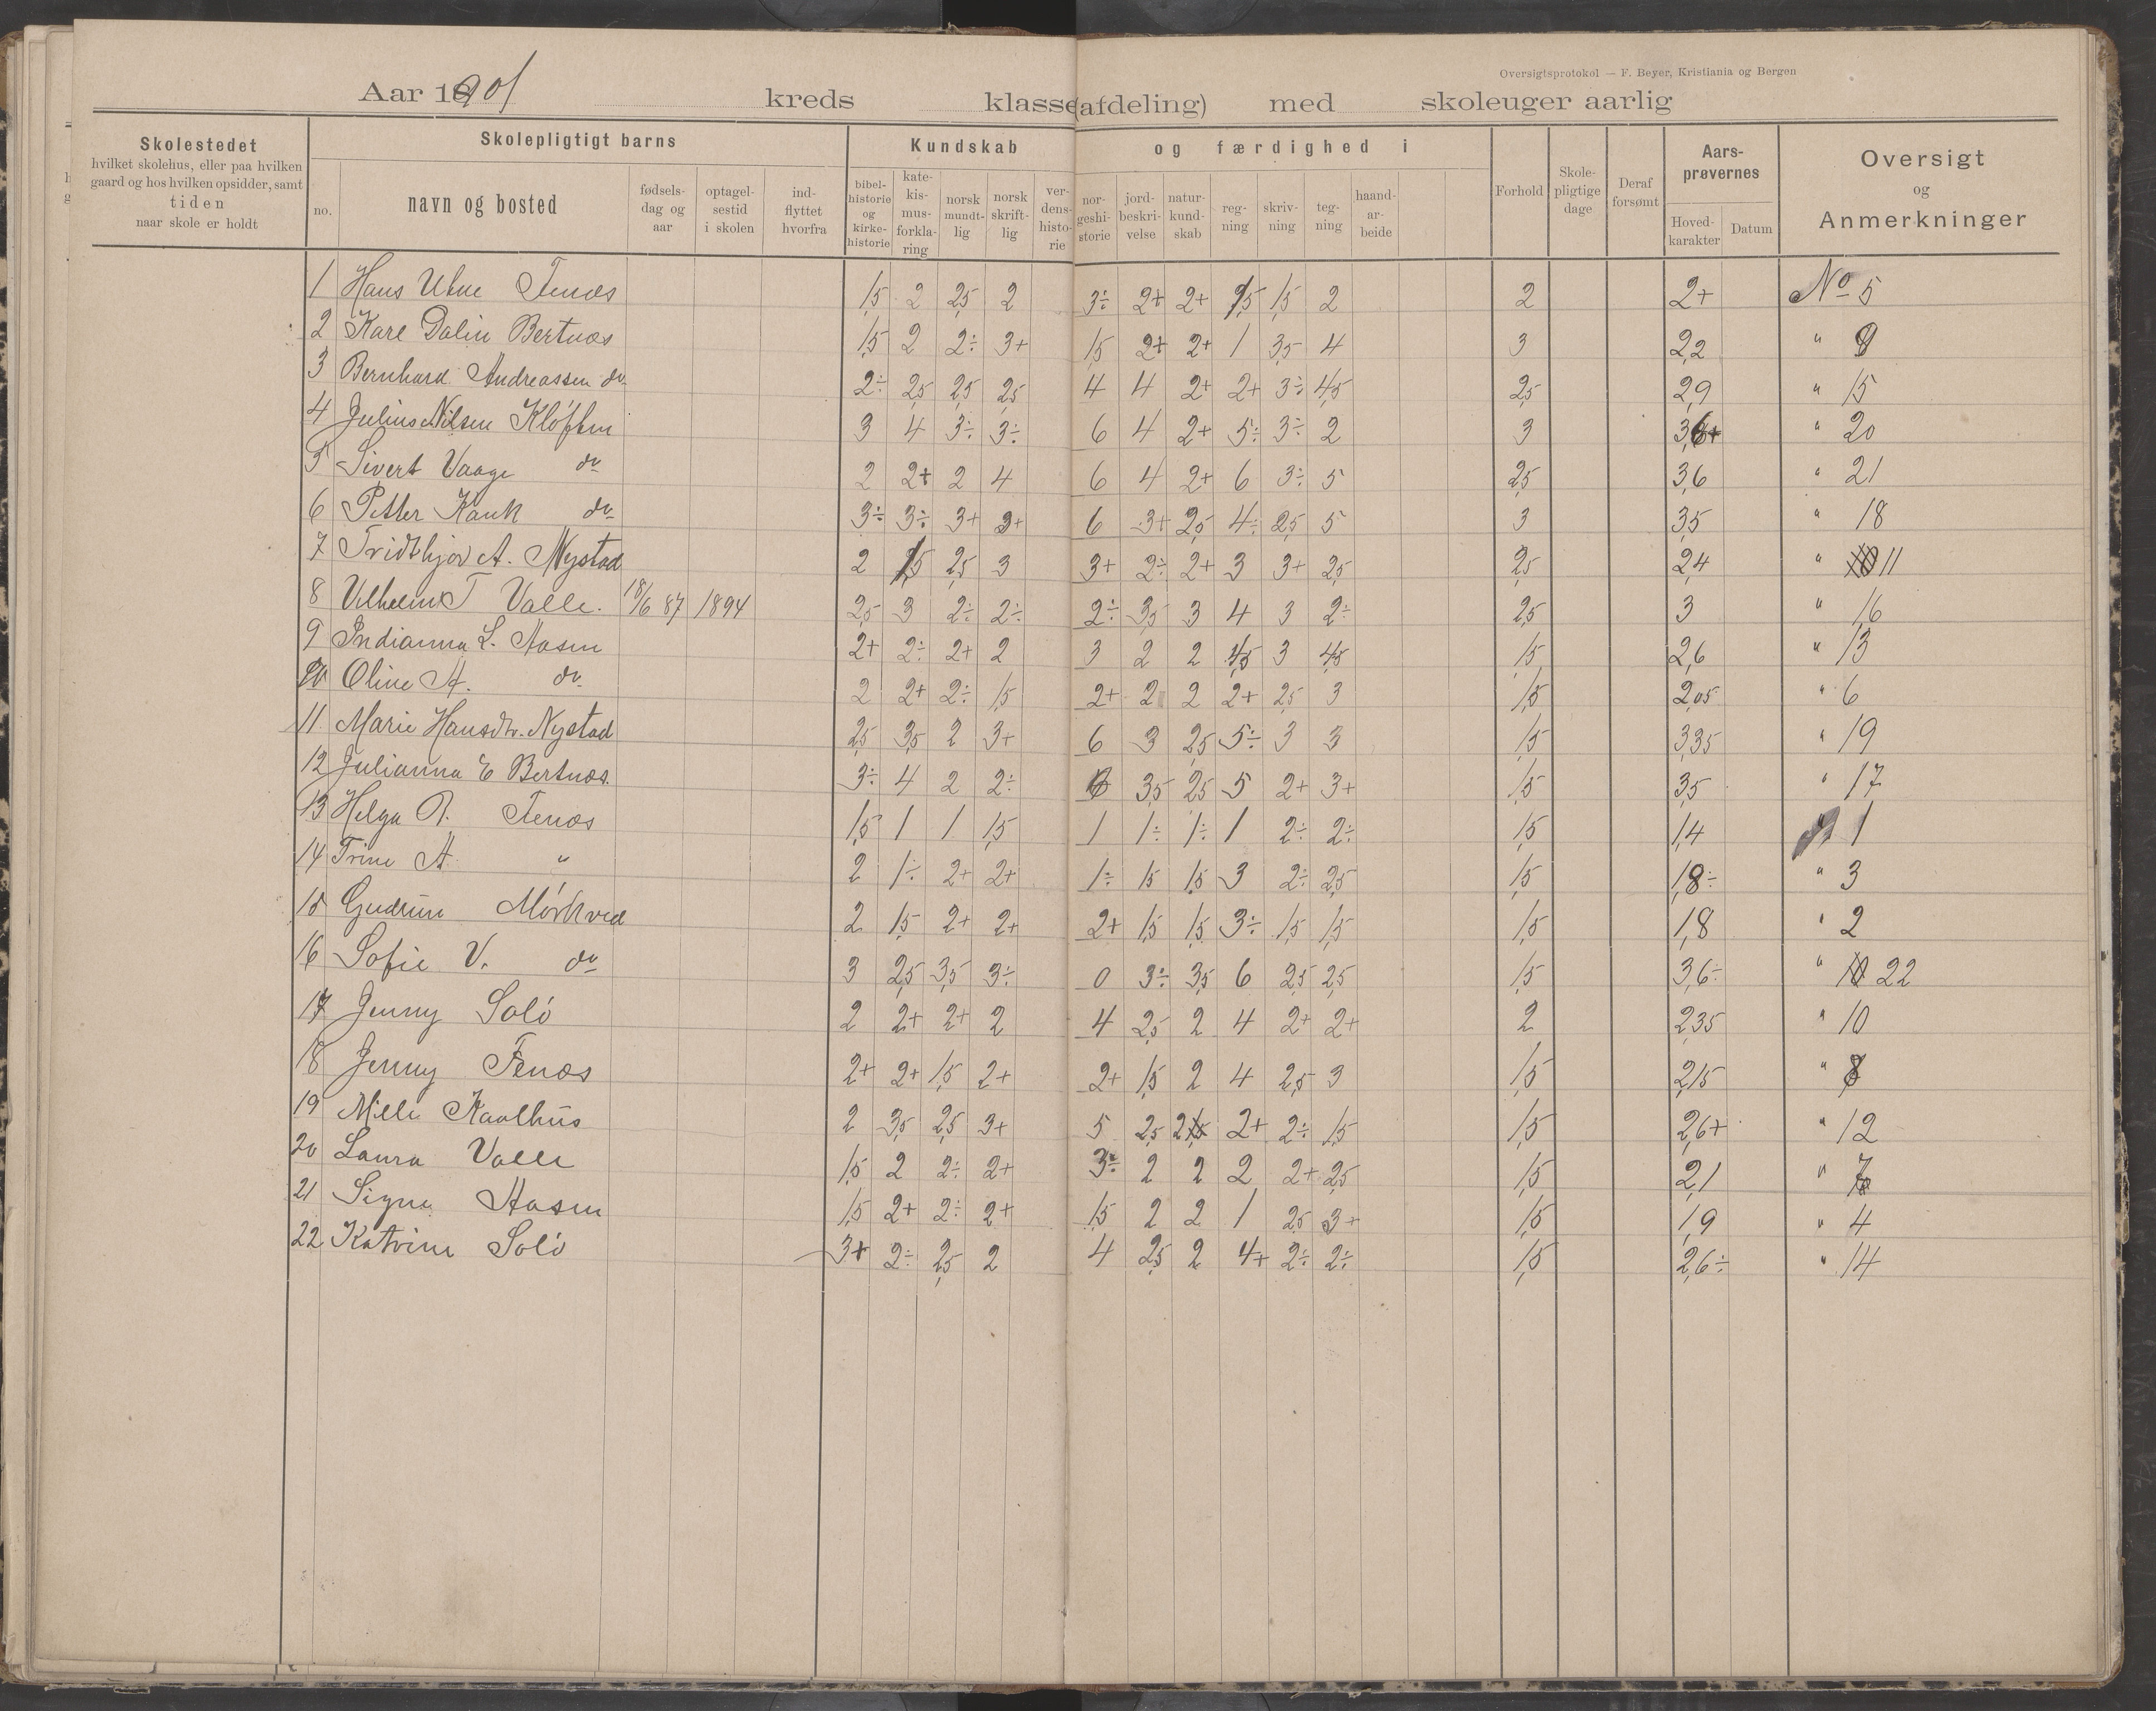 Oversigtsprotokol — F. Beyer, Kristiania og Bergen
Aar 1901 kreds klasse (afdeling) med skoleuger aarlig
Skolestedet hvilket skolehus, eller paa hvilken gaard og hos hvilken opsidder, samt tiden naar skole er holdt
Skolepligtigt barns
no. navn og bosted fødsels-dag og aar optagel-sestid i skolen ind-flyttet hvorfra
Kundskab og færdighed i
bibel-historie og kirke-historie kate-kis-mus-forkla-ring norsk mundt-lig norsk skrift-lig ver-dens-histo-rie nor-geshi-storie jord-beskri-velse natur-kund-skab reg-ning skriv-ning teg-ning haand-ar-beide
Forhold Skole-pligtige dage Deraf forsømt
Aars-prøvernes Hoved-karakter Datum
Oversigt og Anmerkninger
1 Hans Utne Tenæs 1,5 2 2,5 2 3÷ 2+ 2+ 1,5 1,5 2 2 2+ No 5
2 Kare Dalin Bertnæs 1,5 2 2÷ 3+ 1,5 2+ 2+ 1 3,5 4 3 2,2 " 9
3 Bernhard Andreassen do 2÷ 2,5 2,5 2,5 4 4 2+ 2+ 3÷ 4,5 2,5 2,9 " 15
4 Julius Nilsen Kløften 3 4 3÷ 3÷ 6 4 2+ 5÷ 3÷ 2 3 3,6+ " 20
5 Sivert Vaage do 2 2+ 2 4 6 4 2+ 6 3÷ 5 2,5 3,6 " 21
6 Petter Kauk do 3÷ 3÷ 3+ 3+ 6 3+ 2,5 4÷ 2,5 5 3 3,5 " 18
7 Fridthjov A. Nystad 2 1,5 2,5 3 3+ 2÷ 2+ 3 3+ 2,5 2,5 2,4 " 11
8 Vilhelm T Valle. 18/6 87 1894 2,5 3 2÷ 2÷ 2÷ 3,5 3 4 3 2÷ 2,5 3 " 16
9 Indianna L. Aasen 2+ 2÷ 2+ 2 3 2 2 4,5 3 4,5 1,5 2,6 " 13
10 Oline A. do 2 2+ 2÷ 1,5 2+ 2 2 2+ 2,5 3 1,5 2,05 " 6
11 Marie Hansdtr. Nystad 2,5 3,5 2 3+ 6 3 2,5 5÷ 3 3 1,5 3,35 " 19
12 Julianna E Bertnæs. 3÷ 4 2 2÷ 6 3,5 2,5 5 2+ 3+ 1,5 3,5 " 17
13 Helga R. Tenæs 1,5 1 1 1,5 1 1÷ 1÷ 1 2÷ 2÷ 1,5 1,4 " 1
14 Trine A. " 2 1÷ 2+ 2+ 1÷ 1,5 1,5 3 2÷ 2,5 1,5 1,8÷ " 3
15 Gudrun Mørkved 2 1,5 2+ 2+ 2+ 1,5 1,5 3÷ 1,5 1,5 1,5 1,8 " 2
16 Sofie V. do 3 2,5 3,5 3÷ 0 3÷ 3,5 6 2,5 2,5 1,5 3,6÷ " 22
17 Jenny Solø 2 2+ 2+ 2 4 2,5 2 4 2+ 2+ 2 2,35 " 10
18 Jenny Tenæs 2+ 2+ 1,5 2+ 2+ 1,5 2 4 2,5 3 1,5 2,15 " 8
19 Milli Kaalhus 2 3,5 2,5 3+ 5 2,5 2 2+ 2÷ 1,5 1,5 2,6+ " 12
20 Laura Valle 1,5 2 2÷ 2+ 3÷ 2 2 2 2+ 2,5 1,5 2,1 " 7
21 Signe Aasen 1,5 2+ 2÷ 2+ 1,5 2 2 1 2,5 3+ 1,5 1,9 " 4
22 Katrine Solø 3+ 2÷ 2,5 2 4 2,5 2 4+ 2÷ 2÷ 1,5 2,6÷ " 14